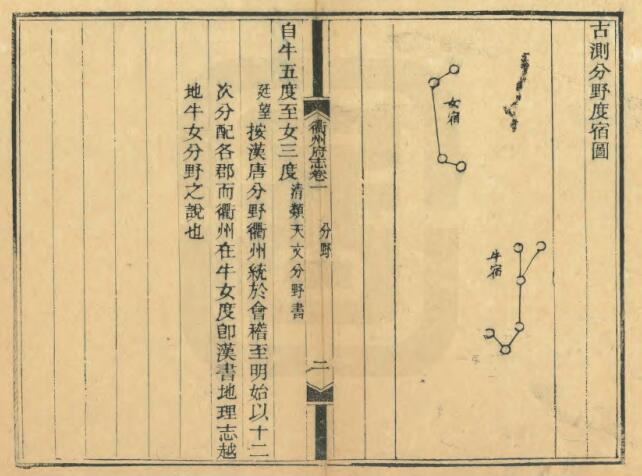 古測分野度宿圖
女宿
牛宿
衢州府志卷一
分野
二
自牛五度至女三度清類天文分野書
廷望按漢唐分野衢州統於會稽至明始以十二
次分配各郡而衢州在牛女度卽漢書地理志越
地牛女分野之說也